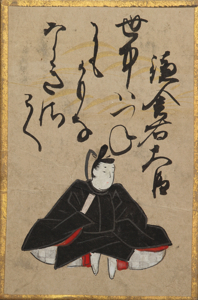 鎌倉右大臣
世中ハつね
にもかもな
なきさこく